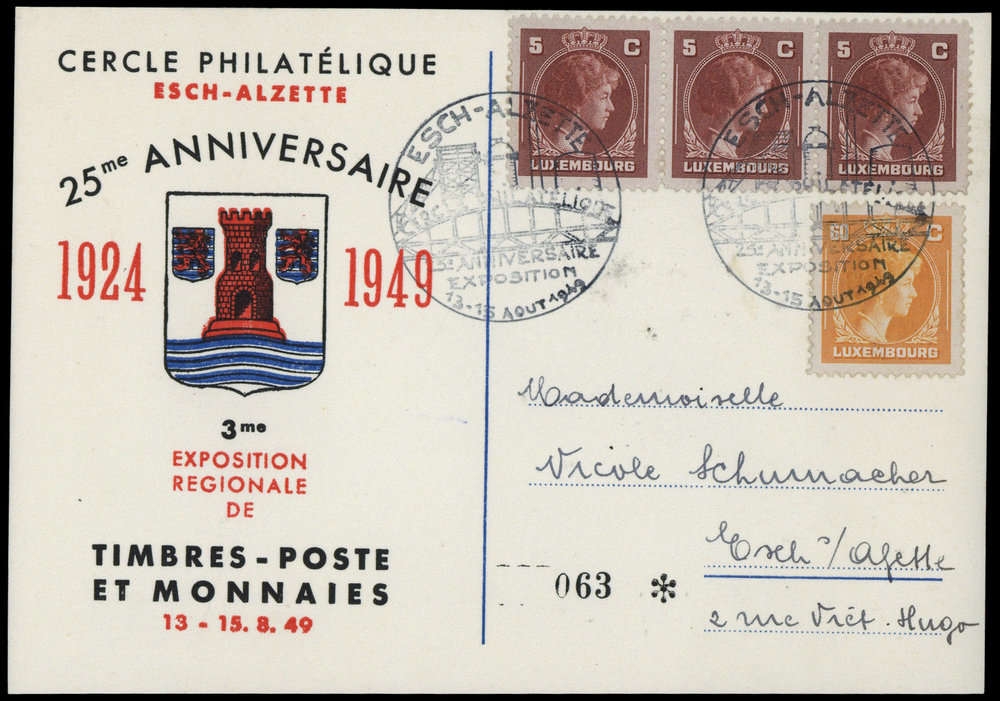 CERCLE PHILATÉLIQUE
ESCH-ALZETTE
25me ANNIVERSAIRE
1924 1949
3me
EXPOSITION
REGIONALE
DE
TIMBRES-POSTE
ET MONNAIES
13 - 15. 8. 49
5 C
LUXEMBOURG
5 C
LUXEMBOURG
5 C
LUXEMBOURG
C
LUXEMBOURG
ESCH-ALZETTE
CERCLE PHILATELIQUE
25e ANNIVERSAIRE
EXPOSITION
13-15 AOUT 1949
ESCH-ALZETTE
PHILATELI
25e ANNIVERSAIRE
EXPOSITION
13-15 AOUT 1949
Mademoiselle
Nicole Schumacher
Esch s/Alzette
2 rue Vict. Hugo
063 *